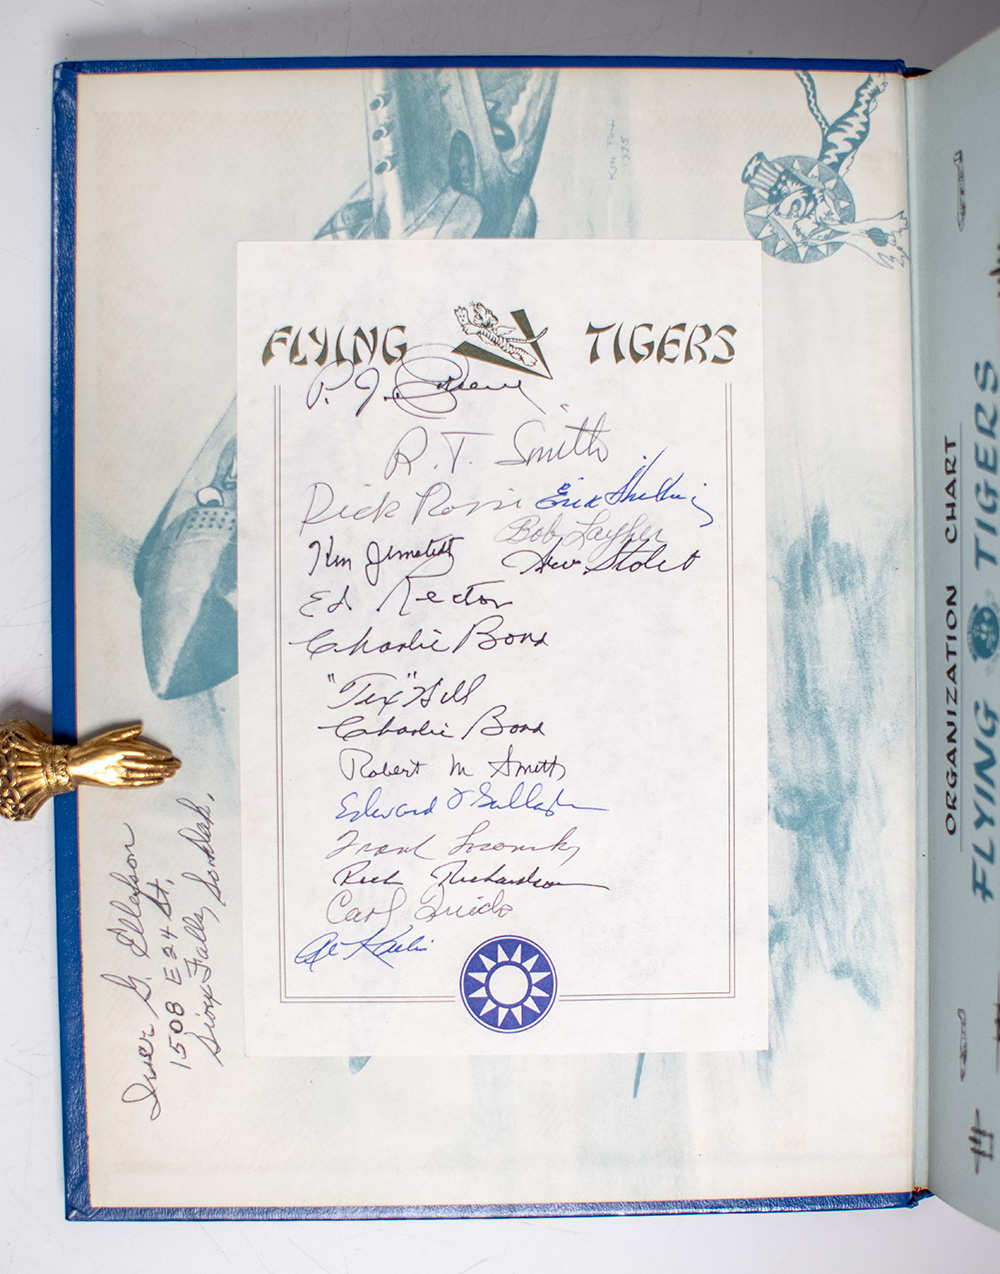 Ken Fow
1975
FLYING TIGERS
P. J. Greene
R. T. Smith
Dick Rossi Erik Shilling
Bob Layher
Ken Jernstedt
Ed Rector
Charlie Bond
"Tex" Hill
Charlie Bond
Robert M Smith
Edward F Gallagher
Frank Losonsky
Rich Richardson
Carl Quick
Iver G. Ellefson
1508 E 24 St,
Sioux Falls, So. Dak.
ORGANIZATION CHART
FLYING TIGERS